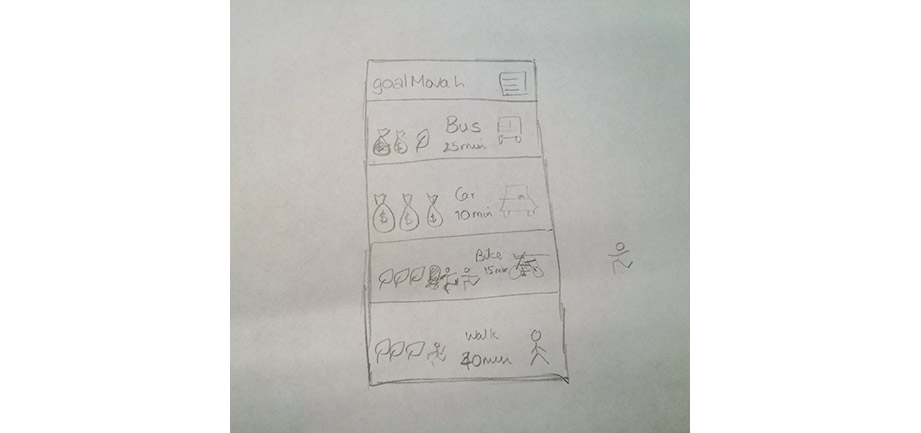 goalMovah
Bus
25min
$ $
Car
10 min
$ $ $
Bike
15min
Walk
40min